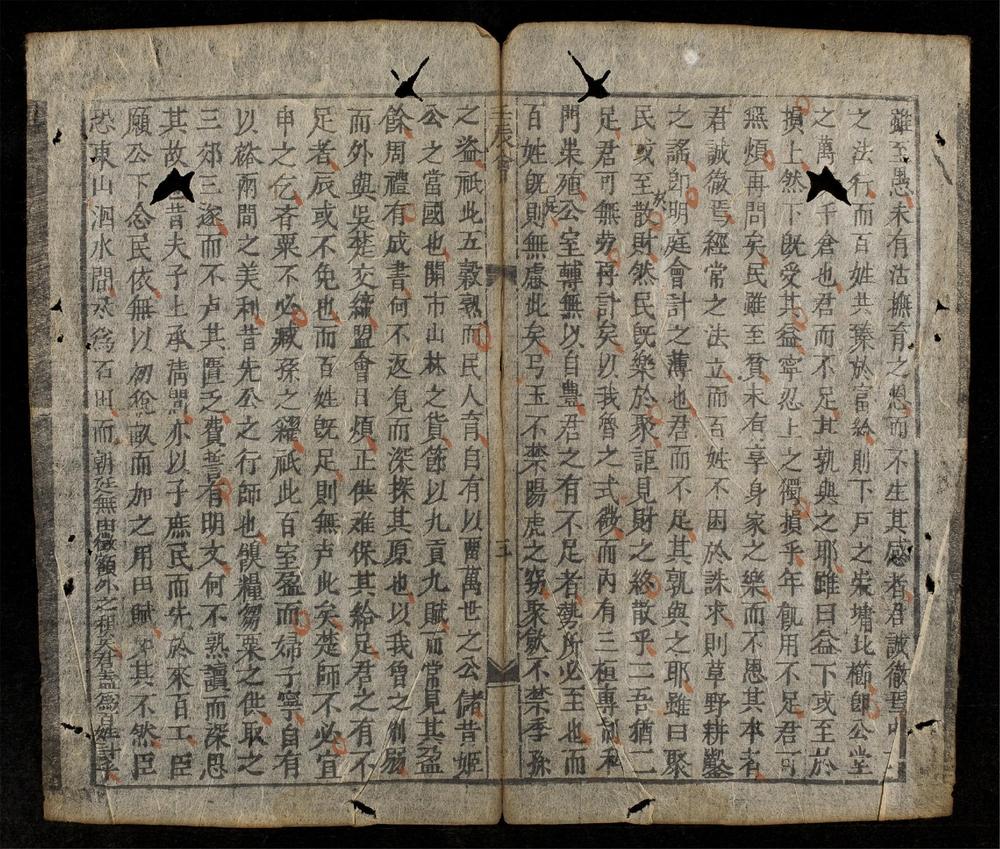 雖至愚未有沽撫育之恩而不生其感者君誠徹焉
之法行而百姓共臻於富給則下戶之崇墉比櫛卽公堂
之萬千倉也君而不足其孰與之耶雖曰益下或至於
損上然下旣受其益寧忍上之獨損乎年飢用不足君可
無煩再問矣民雖至貧未有享身家之樂而不思其本者
君誠徹焉經常之法立而百姓不困於誅求則草野耕鑿
之謠卽明庭會計之薄也君而不足其孰與之耶雖曰聚
民或至於散財然民旣樂於聚詎見財之終散乎二吾猶二
足君可無勞再計矣以我魯之式微而內有三桓專制私
門柒殖公室轉無以自豊君之有不足者勢所必至也而
百姓旣足則無慮此矣弓玉不禁陽虎之竊聚歛不禁季孫
之盗祇此五穀熟而民人育自有以畱萬世之公儲昔姬
公之當國也開市山林之貨節以九貢九賦而常見其盈
餘周禮有成書何不返覓而深探其原也以我魯之削弱
而外與吳楚交締盟會日煩正供难保其給足君之有不
足者辰或不免也而百姓旣足則無卢此矣楚師不必宜
申之乞吝粟不必臧孫之糴祇此百室盈而婦子寧自有
以裕兩間之美利昔先公之行師也餱糧芻粟之供取之
三郊三遂而不卢其匱乏費誓有明文何不熟讀而深思
其故昔夫子上承淸問亦以子庶民而先於來百工臣
願公下念民依無以初稅畝而加之用田賦如其不然臣
恐東山泗水間盡爲石田而朝廷無田徵額外之租矣君盍爲百姓計乎
壬辰會
三